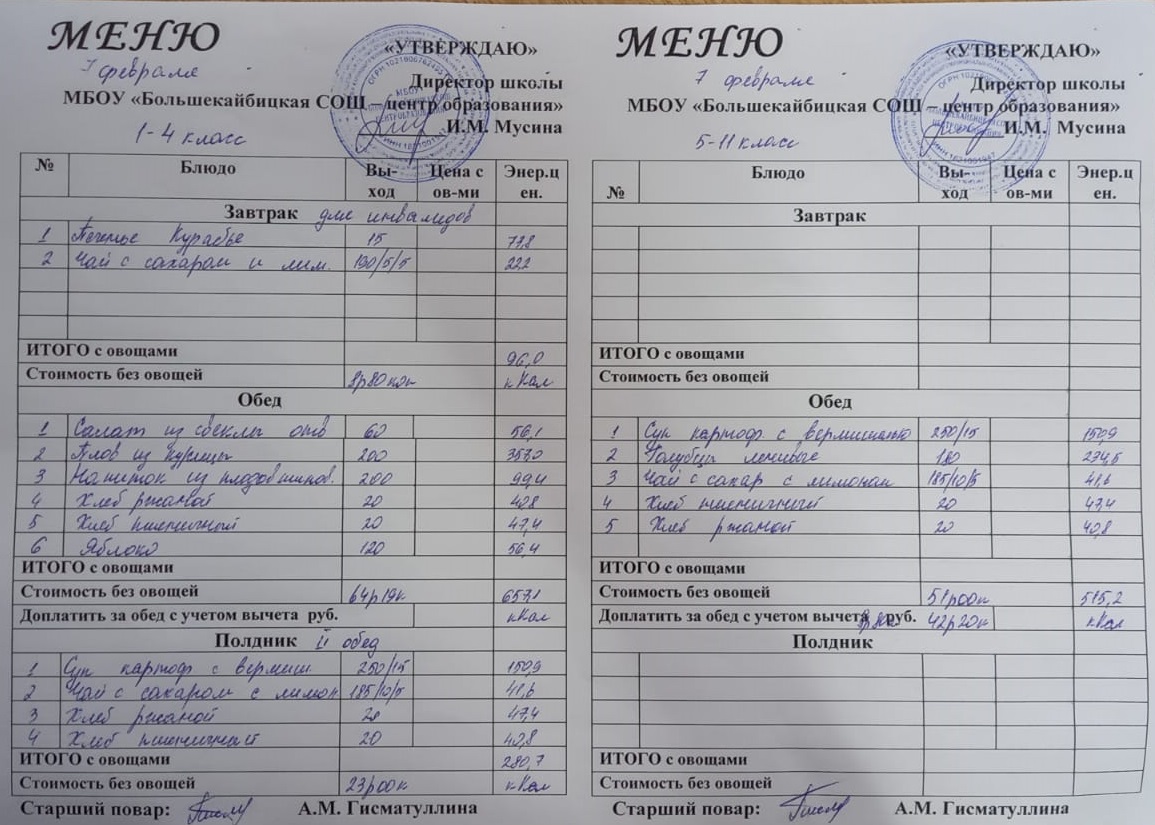 МЕНЮ
7 февраля
«УТВЕРЖДАЮ»
Директор школы
МБОУ «Большекайбицкая СОШ – центр образования»
И.М. Мусина
1-4 класс
№ Блюдо Вы-ход Цена с ов-ми Энер.ц ен.
Завтрак для инвалидов
1 Печенье Курабье 15 73,8
2 Чай с сахаром и лим. 190/5/5 22,2
ИТОГО с овощами 96,0
Стоимость без овощей 8р80коп кКал
Обед
1 Салат из свеклы отв 60 56,1
2 Плов из курицы 200 357,0
3 Напиток из плодов шипов. 200 99,4
4 Хлеб ржаной 20 40,8
5 Хлеб пшеничный 20 47,4
6 Яблоко 120 56,4
ИТОГО с овощами
Стоимость без овощей 64р19к 657,1
Доплатить за обед с учетом вычета руб. кКал
Полдник II обед
1 Суп картоф с вермиш. 250/15 150,9
2 Чай с сахаром с лимон. 185/10/5 41,6
3 Хлеб ржаной 20 47,4
4 Хлеб пшеничный 20 40,8
ИТОГО с овощами 280,7
Стоимость без овощей 23р00к кКал
Старший повар: А.М. Гисматуллина
МЕНЮ
7 февраля
«УТВЕРЖДАЮ»
Директор школы
МБОУ «Большекайбицкая СОШ – центр образования»
И.М. Мусина
5-11 класс
№ Блюдо Вы-ход Цена с ов-ми Энер.ц ен.
Завтрак
ИТОГО с овощами
Стоимость без овощей
Обед
1 Суп картоф. с вермишелью 250/15 150,9
2 Голубцы ленивые 180 234,5
3 Чай с сахар с лимоном 185/10/5 41,6
4 Хлеб пшеничный 20 47,4
5 Хлеб ржаной 20 40,8
ИТОГО с овощами
Стоимость без овощей 51р00к 515,2
Доплатить за обед с учетом вычета 8р80к руб. 42р20к кКал
Полдник
ИТОГО с овощами
Стоимость без овощей
Старший повар: А.М. Гисматуллина